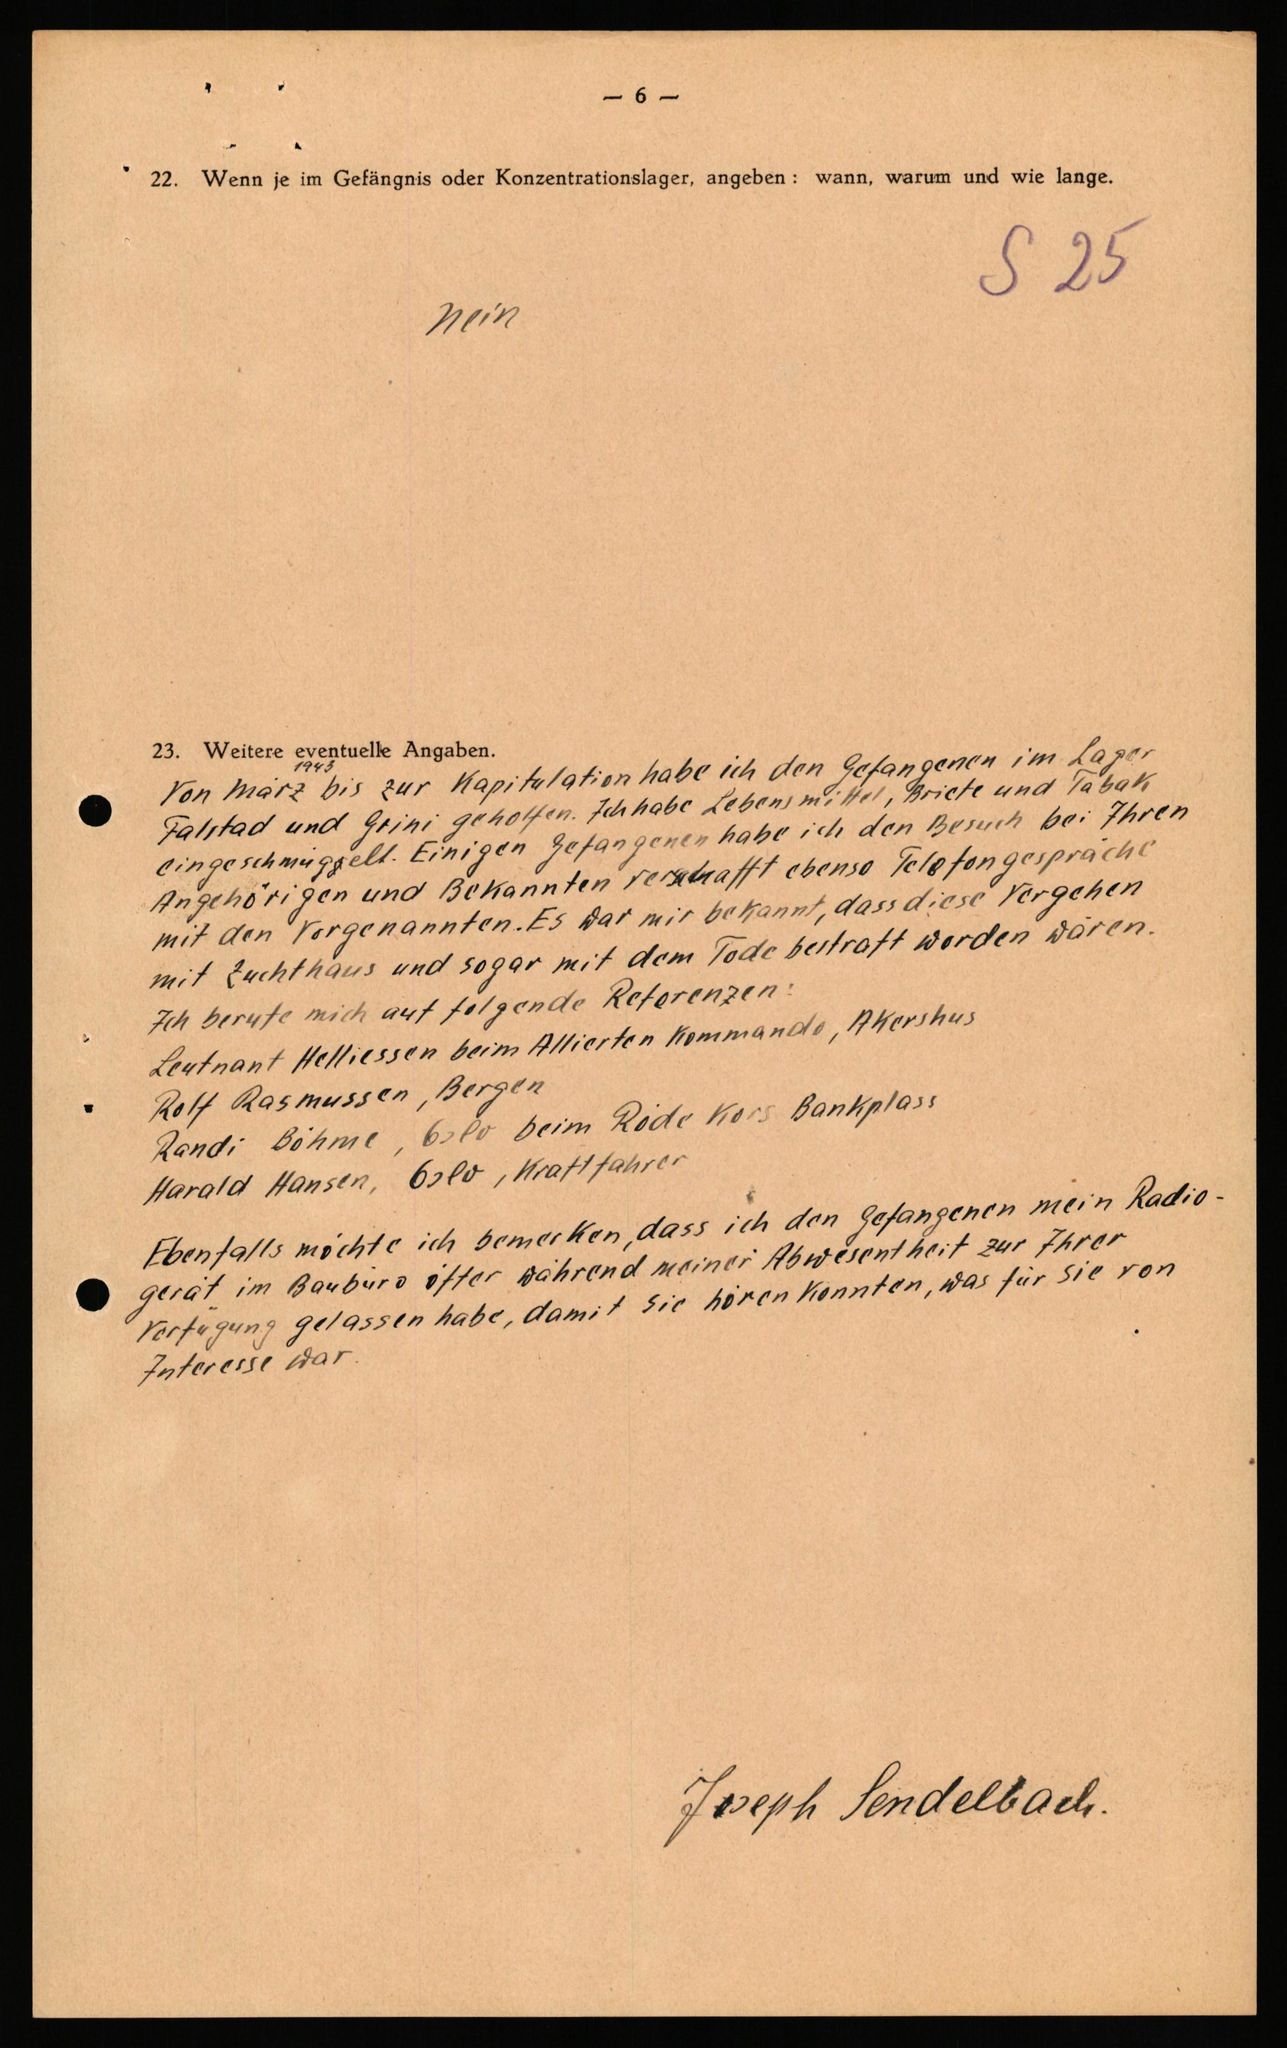 — 6 —
22. Wenn je im Gefängnis oder Konzentrationslager, angeben: wann, warum und wie lange.
S 25
nein
23. Weitere eventuelle Angaben.
1943
Von März bis zur Kapitulation habe ich den Gefangenen im Lager
Falstad und Grini geholfen. Ich habe Lebensmittel, Briefe und Tabak
eingeschmuggelt. Einigen Gefangenen habe ich den Besuch bei Ihren
Angehörigen und Bekannten verschafft ebenso Telefongespräche
mit den Vorgenannten. Es war mir bekannt, dass diese Vergehen
mit Zuchthaus und sogar mit dem Tode bestraft worden wären.
Ich berufe mich auf folgende Referenzen:
Leutnant Helliessen beim Allierten Kommando, Akershus
Rolf Rasmussen, Bergen
Randi Böhme, Oslo beim Röde Kors Bankplass
Harald Hansen, Oslo, Kraftfahrer
Ebenfalls möchte ich bemerken, dass ich den Gefangenen mein Radio-
gerät im Baubüro öfter während meiner Abwesentheit zur Ihrer
Verfügung gelassen habe, damit sie hören konnten, was für sie von
Interesse war.
Joseph Sendelbach.